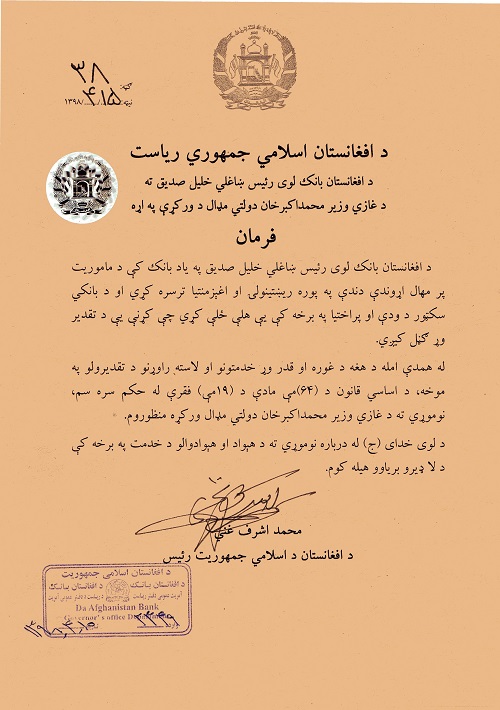 ګڼه: ۳۸
نېټه: ۱۳۹۸/۴/۱۵
د افغانستان اسلامي جمهوري ریاست
د افغانستان بانک لوی رئیس ښاغلي خلیل صدیق ته
د غازي وزیر محمداکبرخان دولتي مډال د ورکړې په اړه
فرمان
د افغانستان بانک لوی رئیس ښاغلي خلیل صدیق په یاد بانک کې د ماموریت
پر مهال اړوندې دندې په پوره ریښتینولۍ او اغېزمنتیا ترسره کړي او د بانکي
سکټور د ودې او پراختیا په برخه کې یې هلې ځلې کړي چې کړنې یې د تقدیر
وړ ګڼل کیږي.
له همدې امله د هغه د غوره او قدر وړ خدمتونو او لاسته راوړنو د تقدیرولو په
موخه، د اساسي قانون د (۶۴)مې مادې د (۱۹مې) فقرې له حکم سره سم،
نوموړي ته د غازي وزیر محمداکبرخان دولتي مډال ورکړه منظوروم.
د لوی خدای (ج) له درباره نوموړي ته د هېواد او هېوادوالو د خدمت په برخه کې
د لا ډېرو بریاوو هیله کوم.
محمد اشرف غني
د افغانستان د اسلامي جمهوریت رئیس
د افغانستان اسلامي جمهوریت
د افغانستان بانک د افغانستان بانک
Da Afghanistan Bank
Governor's office